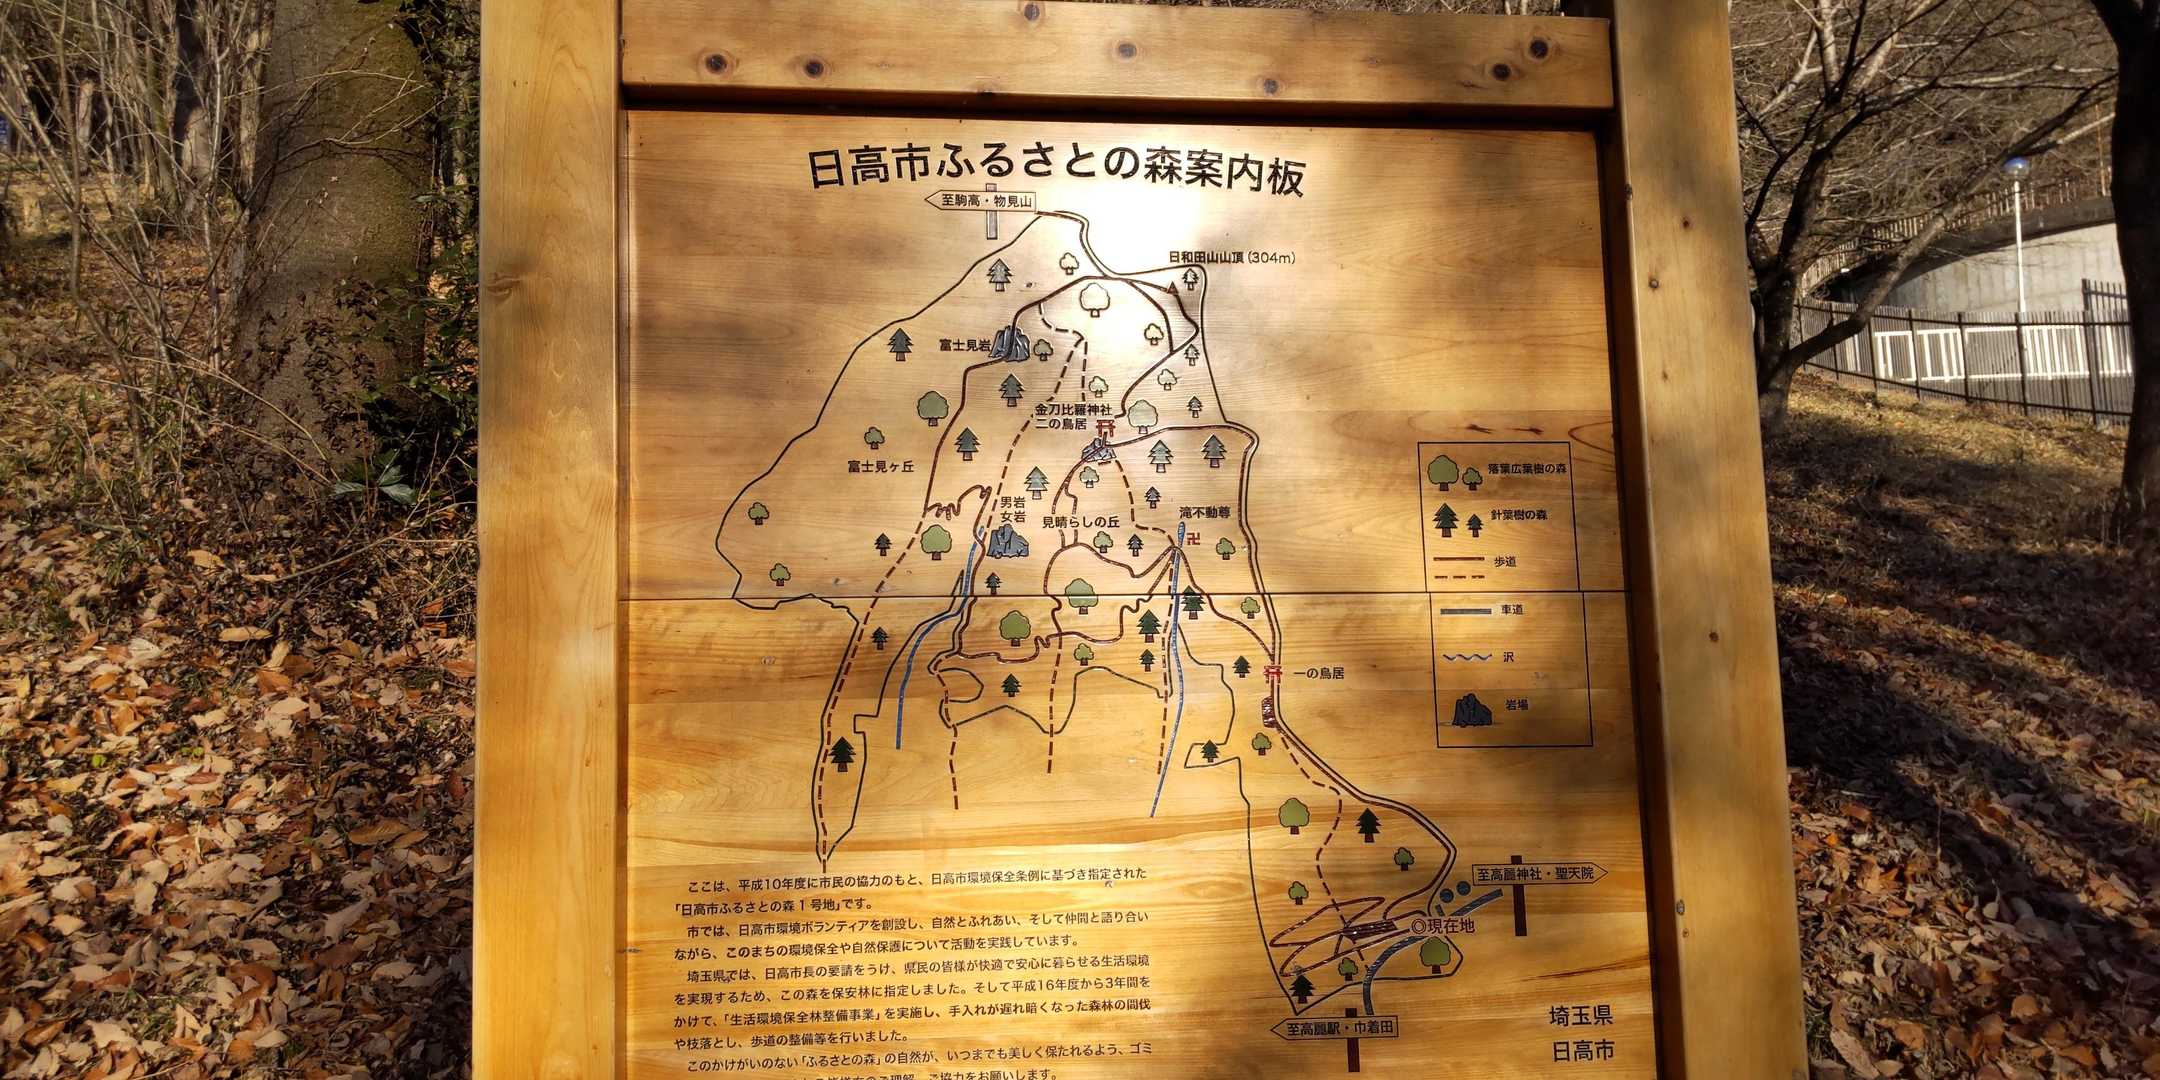 日高市ふるさとの森案内板
至駒高・物見山
日和田山山頂(304m)
富士見岩
金刀比羅神社
二の鳥居
富士見ヶ丘
男岩
女岩
見晴らしの丘
滝不動尊
卍
落葉広葉樹の森
針葉樹の森
歩道
車道
沢
岩場
一の鳥居
至高麗神社・聖天院
◎現在地
至高麗駅・巾着田
ここは、平成10年度に市民の協力のもと、日高市環境保全条例に基づき指定された
「日高市ふるさとの森1号地」です。
市では、日高市環境ボランティアを創設し、自然とふれあい、そして仲間と語り合い
ながら、このまちの環境保全や自然保護について活動を実践しています。
埼玉県では、日高市長の要請をうけ、県民の皆様が快適で安心に暮らせる生活環境
を実現するため、この森を保安林に指定しました。そして平成16年度から3年間を
かけて、「生活環境保全林整備事業」を実施し、手入れが遅れ暗くなった森林の間伐
や枝落とし、歩道の整備等を行いました。
このかけがいのない「ふるさとの森」の自然が、いつまでも美しく保たれるよう、ゴミ
ご協力をお願いします。
埼玉県
日高市